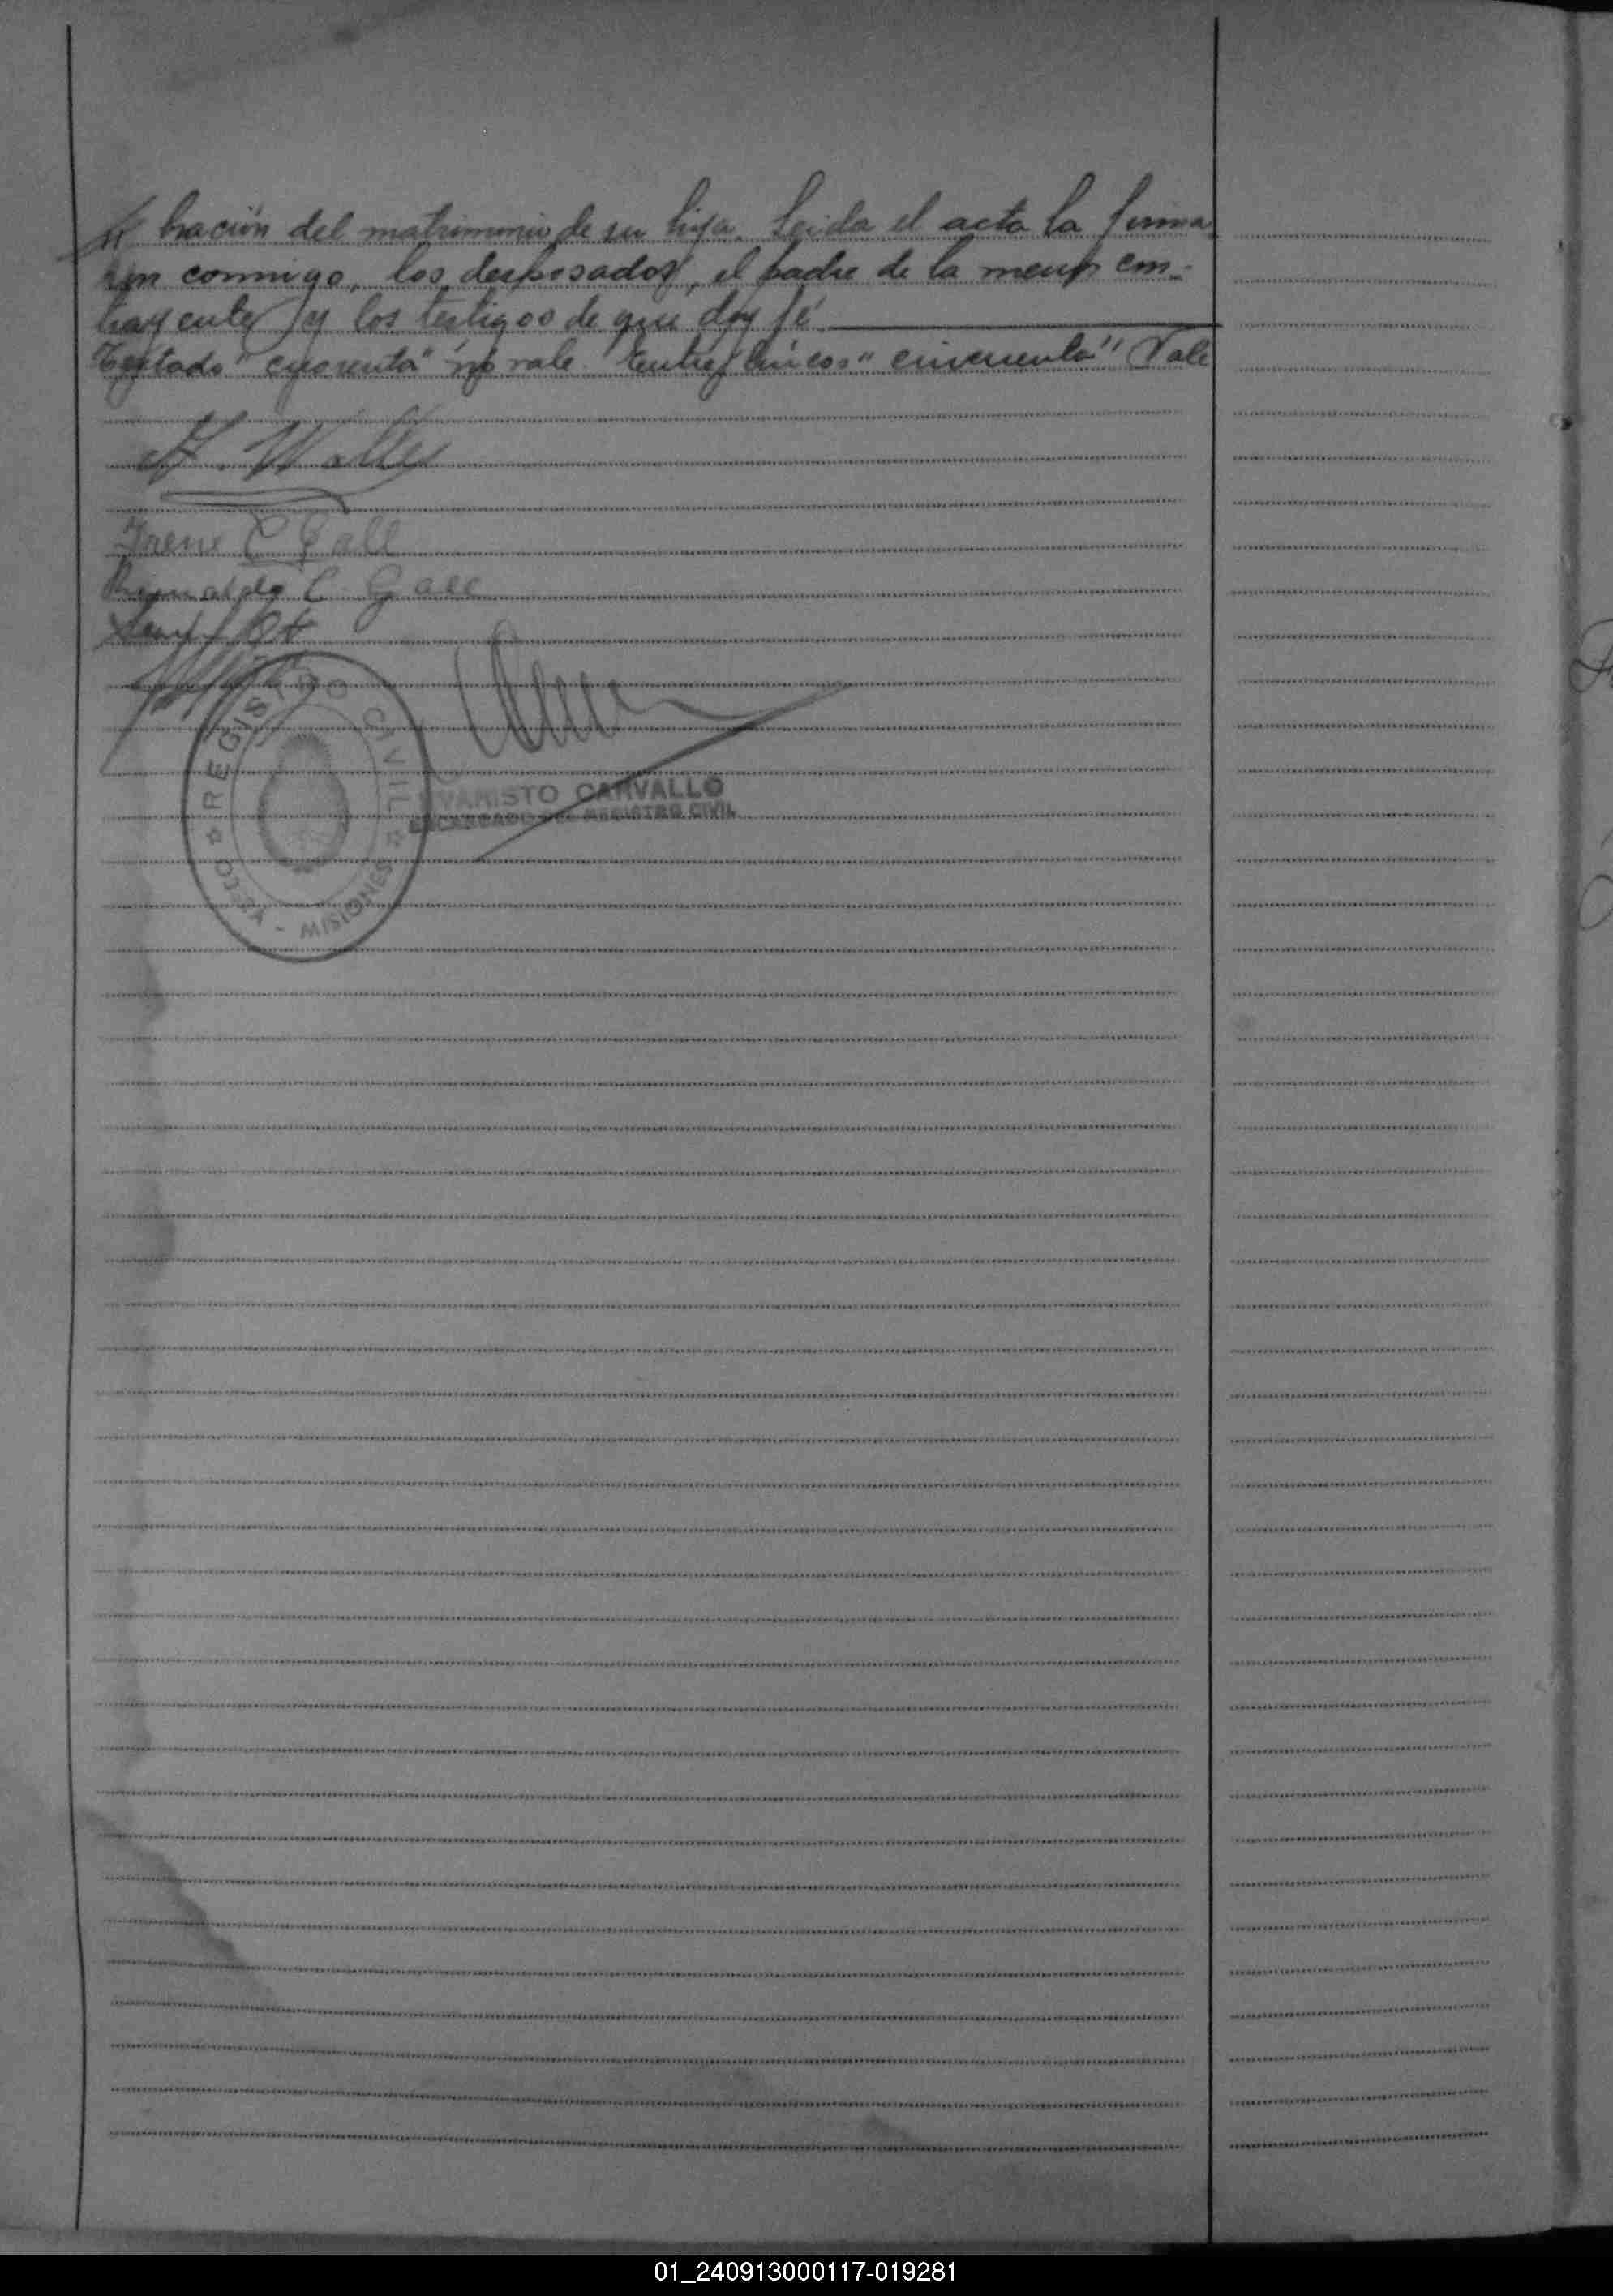 bración del matrimonio de su hija. Leida el acta la firma
rón conmigo, los desposados, el padre de la menor con-
trayente y los testigos de que doy fé.
Testado "cuarenta" no vale. Entre líneas "cincuenta" Vale
Irene C Gall
Reinaldo C. Gall
REGISTRO CIVIL
MISIONES
EVARISTO CARVALLO
ENCARGADO DEL REGISTRO CIVIL
01_240913000117-019281